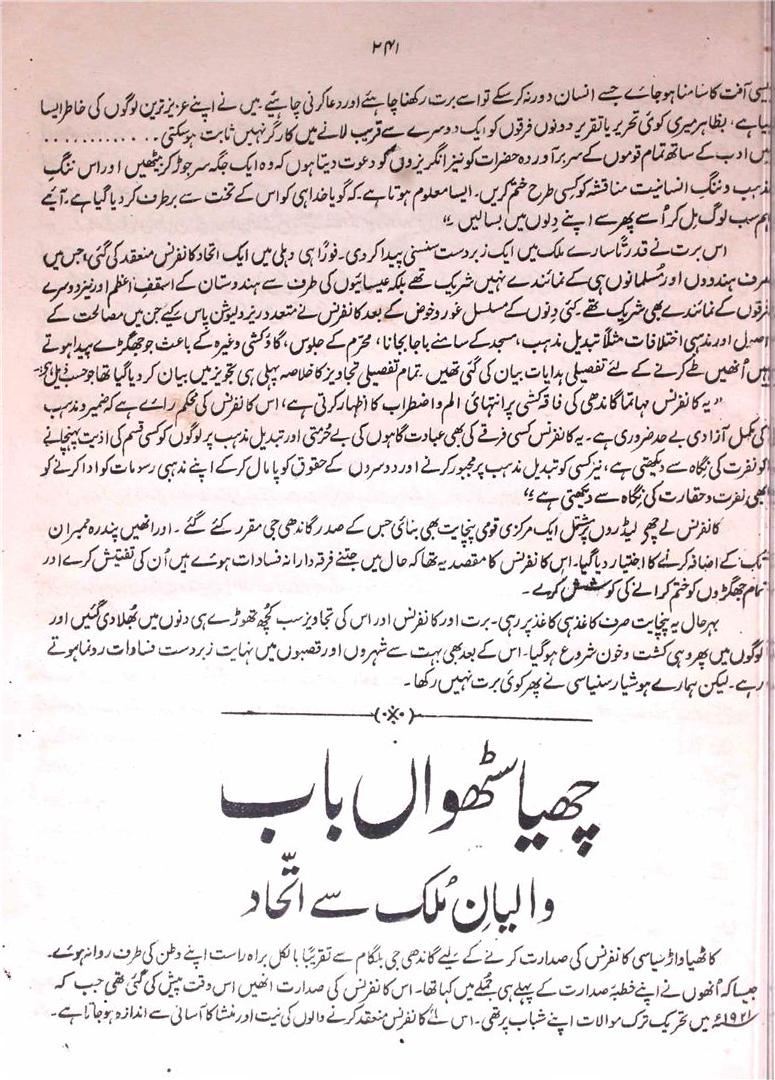 ۲۴۱
ایسی آفت کا سامنا ہو جائے جسے انسان دور نہ کر سکے تو اسے برت رکھنا چاہئے اور دعا کرنی چاہئے۔ میں نے اپنے عزیز ترین لوگوں کی خاطر ایسا
کیا ہے، بظاہر میری کوئی تحریر یا تقریر دونوں فرقوں کو ایک دوسرے سے قریب لانے میں کارگر نہیں ثابت ہو سکتی . . . . . . . . . . .
میں ادب کے ساتھ تمام قوموں کے سربرآوردہ حضرات کو نیز انگریزوں کو دعوت دیتا ہوں کہ وہ ایک جگہ سر جوڑ کر بیٹھیں اور اس ننگِ
مذہب و ننگِ انسانیت مناقشہ کو کسی طرح ختم کریں۔ ایسا معلوم ہوتا ہے کہ گویا خدا ہی کو اس کے تخت سے برطرف کر دیا گیا ہے۔ آئیے
ہم سب لوگ مل کر اُسے پھر سے اپنے دلوں میں بسالیں ۔“
اس برت نے قدرتاً سارے ملک میں ایک زبردست سنسنی پیدا کر دی۔ فوراً ہی دہلی میں ایک اتحاد کانفرنس منعقد کی گئی، جس میں
صرف ہندوؤں اور مُسلمانوں ہی کے نمائندے نہیں شریک تھے بلکہ عیسائیوں کی طرف سے ہندوستان کے اسقفِ اعظم اور نیز دوسرے
فرقوں کے نمائندے بھی شریک تھے۔ کئی دِنوں کے مسلسل غور و خوض کے بعد کانفرنس نے متعدد ریزولیوشن پاس کیے جن میں مصالحت کے
اصول اور مذہبی اختلافات مثلاً تبدیل مذہب، مسجد کے سامنے باجا بجانا، محرّم کے جلوس، گاؤکشی وغیرہ کے باعث جو جھگڑے پیدا ہوتے
ہیں اُنھیں طے کرنے کے لئے تفصیلی ہدایات بیان کی گئی تھیں۔ تمام تفصیلی تجاویز کا خلاصہ پہلی ہی تجویز میں بیان کر دیا گیا تھا جو حسب ذیل ہے:-
”یہ کانفرنس مہاتما گاندھی کی فاقہ کشی پر انتہائی الم و اضطراب کا اظہار کرتی ہے، اس کانفرنس کی محکم رائے ہے کہ ضمیر و مذہب
کی مکمل آزادی بے حد ضروری ہے۔ یہ کانفرنس کسی فرقے کی بھی عبادت گاہوں کی بے حُرمتی اور تبدیل مذہب پر لوگوں کو کسی قسم کی اذیت پہنچانے
کو نفرت کی نگاہ سے دیکھتی ہے، نیز کسی کو تبدیل مذہب پر مجبور کرنے اور دوسروں کے حقوق کو پامال کر کے اپنے مذہبی رسومات کو ادا کرنے کو
بھی نفرت و حقارت کی نگاہ سے دیکھتی ہے“
کانفرنس نے چھ لیڈروں پر مشتمل ایک مرکزی قومی پنچایت بھی بنائی جس کے صدر گاندھی جی مقرر کئے گئے ۔ اور انھیں پندرہ ممبران
تک کے اضافہ کرنے کا اختیار دیا گیا۔ اس کانفرنس کا مقصد یہ تھا کہ حال میں جتنے فرقہ دارانہ فسادات ہوئے ہیں اُن کی تفتیش کرے اور
تمام جھگڑوں کو ختم کرانے کی کوشش کرے۔
بہر حال یہ پنچایت صرف کاغذ ہی کاغذ پر رہی۔ برت اور کانفرنس اور اس کی تجاویز سب کچھ تھوڑے ہی دنوں میں بھُلا دی گئیں اور
لوگوں میں پھر وہی کشت و خون شروع ہو گیا۔ اس کے بعد بھی بہت سے شہروں اور قصبوں میں نہایت زبردست فسادات رونما ہوتے
رہے۔ لیکن ہمارے ہوشیار سنیاسی نے پھر کوئی برت نہیں رکھا۔
چھیاسٹھواں باب
والیانِ مُلک سے اتّحاد
کاٹھیاواڑ سیاسی کانفرنس کی صدارت کرنے کے لیے گاندھی جی بلگام سے تقریباً بالکل براہ راست اپنے وطن کی طرف روانہ ہوئے۔
جیسا کہ اُنھوں نے اپنے خطبۂ صدارت کے پہلے ہی جملے میں کہا تھا۔ اس کانفرنس کی صدارت انھیں اس وقت پیش کی گئی تھی جب کہ
۱۹۲۱ء میں تحریک ترک موالات اپنے شباب پر تھی۔ اس سے کانفرنس منعقد کرنے والوں کی نیت اور منشا کا آسانی سے اندازہ ہو جاتا ہے۔